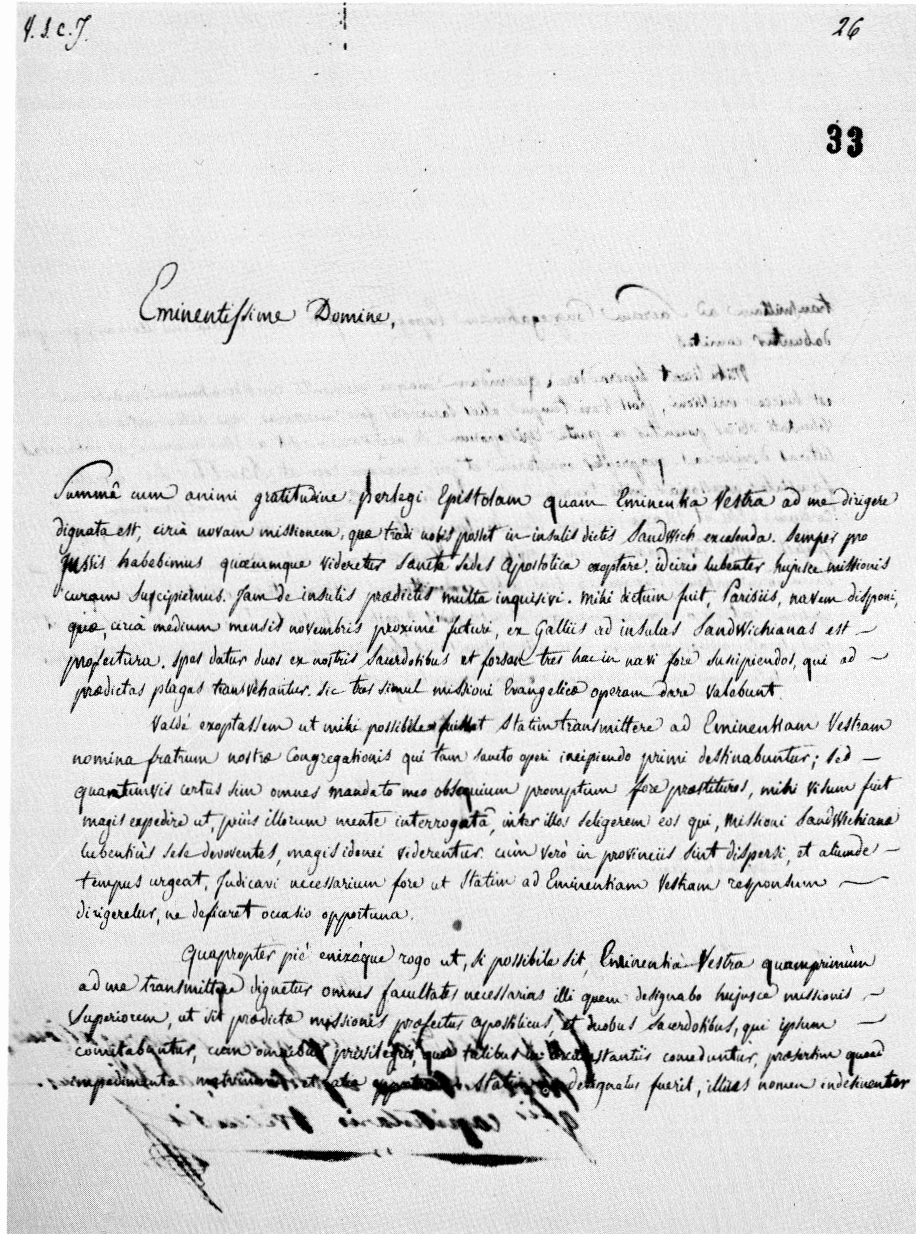 V. S. C. J.
26
33
Eminentissime Domine,
Summâ cum animi gratitudine perlegi Epistolam quam Eminentia Vestra ad me dirigere
dignata est, circà novam missionem, quæ tradi nobis posset in insulis dictis Sandwich excolenda. Semper pro
jussis habebimus quæcumque videretur Sancta Sedes Apostolica exoptare. idcircò lubenter hujusce missionis
curam suscipiemus. Jam de insulis prædictis multa inquisivi. Mihi dictum fuit, Parisiis, navem disponi,
quæ, circà medium mensis novembris proximè futuri, ex Galliis ad insulas Sandwichianas est —
profectura. Spes datur duos ex nostris Sacerdotibus et forsan tres hac in navi fore suscipiendos, qui ad —
prædictas plagas transvehantur. Sic tres simul missioni Evangelicæ operam dare valebunt.
Valdè exoptassem ut mihi possibile fuisset statim transmittere ad Eminentiam Vestram
nomina fratrum nostræ Congregationis qui tam sancto operi incipiendo primi destinabuntur; sed —
quantumvis certus sim omnes mandato meo obsequium promptum fore præstituros, mihi visum fuit
magis expedire ut, priùs illorum mente interrogatâ, inter illos seligerem eos qui, Missioni Sandwichianæ
lubentiùs sese devoventes, magis idonei viderentur. cùm verò in provinciis sint dispersi, et aliunde —
tempus urgeat, Judicavi necessarium fore ut statim ad Eminentiam Vestram responsum —
dirigeretur, ne deficeret occasio opportuna.
Quapropter piè enixèque rogo ut, si possibile sit, Eminentia Vestra quamprimùm
ad me transmittere dignetur omnes facultates necessarias illi quem designabo hujusce missionis —
Superiorem, ut sit prædictæ missionis præfectus apostolicus, et duobus Sacerdotibus, qui ipsum —
comitabuntur, cum omnibus privilegiis, quæ talibus in circumstantiis conceduntur, præsertim quoad
impedimenta matrimonii et alia Statim designatus fuerit, illius nomen indesinenter